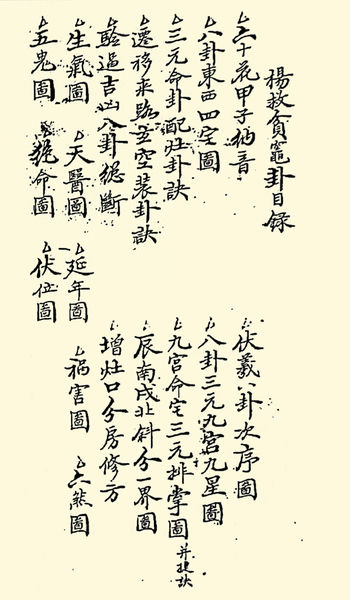 楊救貧竈卦目錄
六十花甲子納音 伏羲八卦次序圖
八卦東西四宅圖 八卦三元九宮九星圖
三元命卦配灶卦訣 九宮命宅三元排掌圖 并捷訣
遷移來路玄空装卦訣 辰南戌北斜分一界圖
吉凶八卦總斷 增灶口分房修方
生氣圖 天醫圖 延年圖 祸害圖 六煞圖
五鬼圖 絕命圖 伏位圖